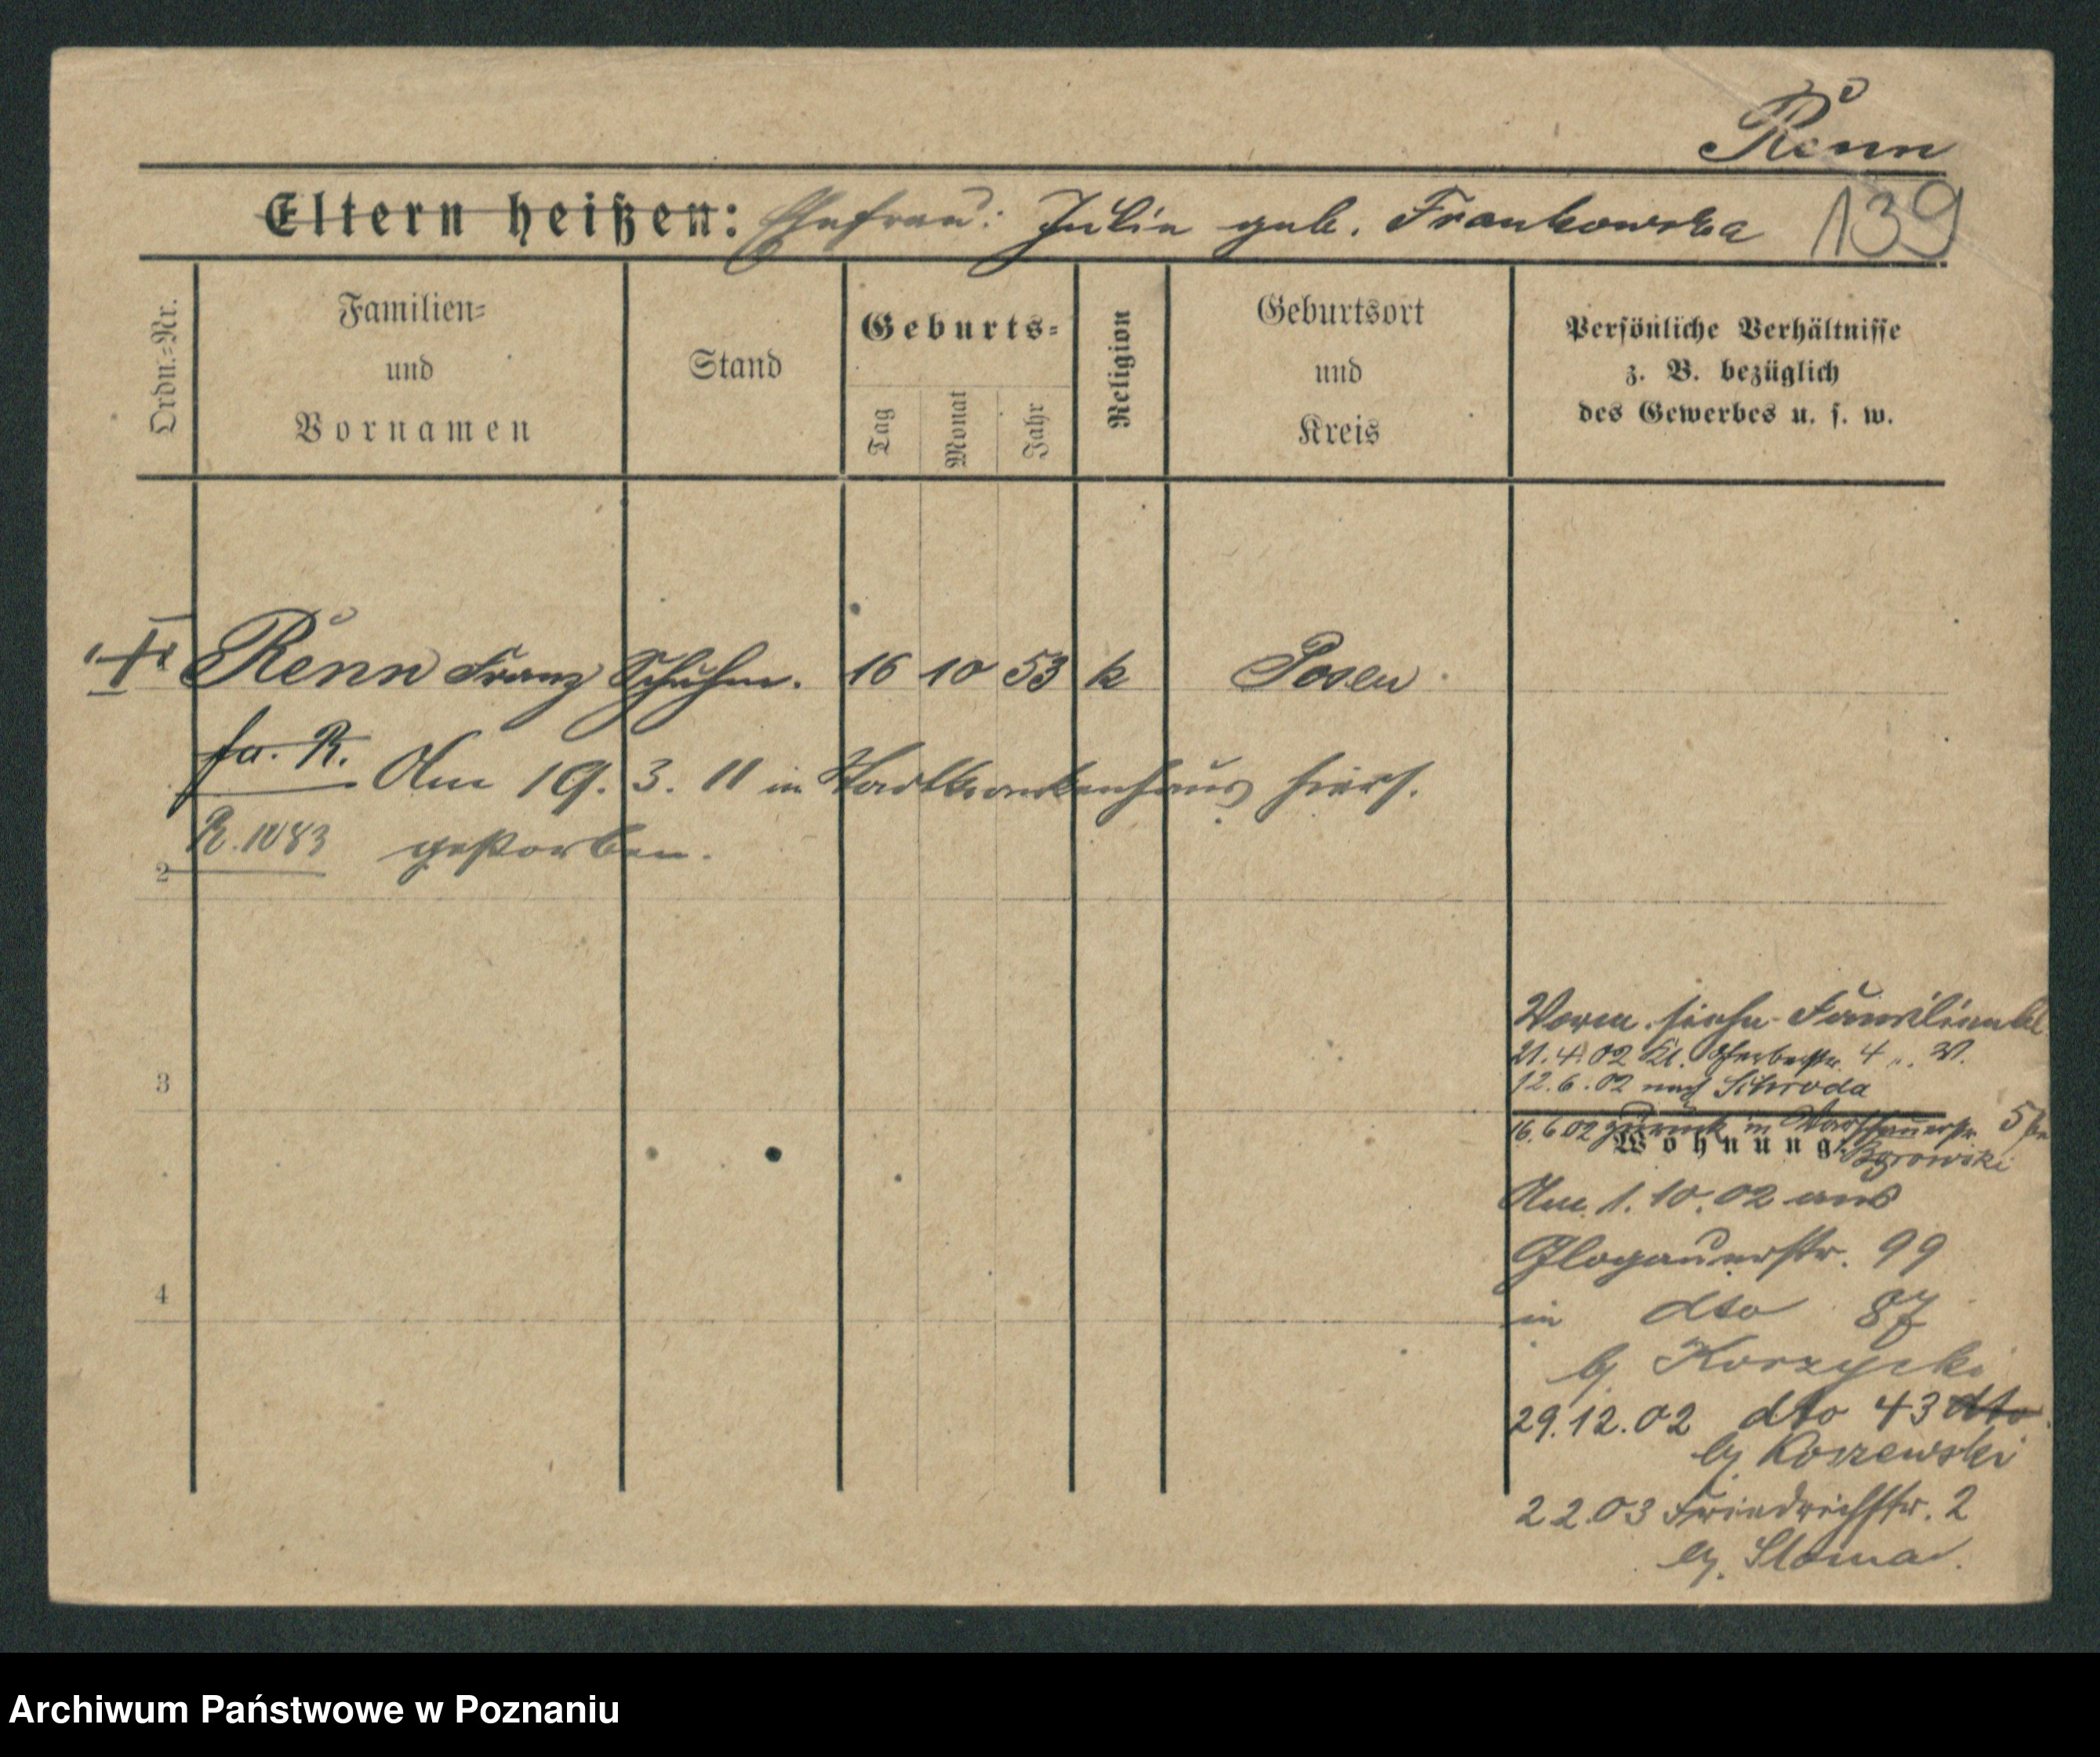 Renn
Eltern heißen: Ehefrau: Julie geb. Frankowska 139
Ordn.=Nr.
Familien=
und
Vornamen
Stand
Geburts=
Tag
Monat
Jahr
Religion
Geburtsort
und
Kreis
Persönliche Verhältnisse
z. B. bezüglich
des Gewerbes u. s. w.
Renn Franz Schuhm. 16 10 53 k Posen
fa. R.
Am 19. 3. 11 in Stadtkrankenhaus hiers.
R. 1083 gestorben.
2
3
4
Vorm. siehe Familienbl
21. 4. 02 Kl. Gerberstr. 4
12. 6. 02 nach Schroda
16. 6 02 zurück in Warschauerstr. 5
Wohnung
Am 1. 10. 02 aus
Glogauerstr. 99
in dto 87
b/ Korzycki
29. 12. 02 dto 43 dto
b/ Koszewski
2 2. 03 Friedrichstr. 2
b/. Sloma.
Archiwum Państwowe w Poznaniu